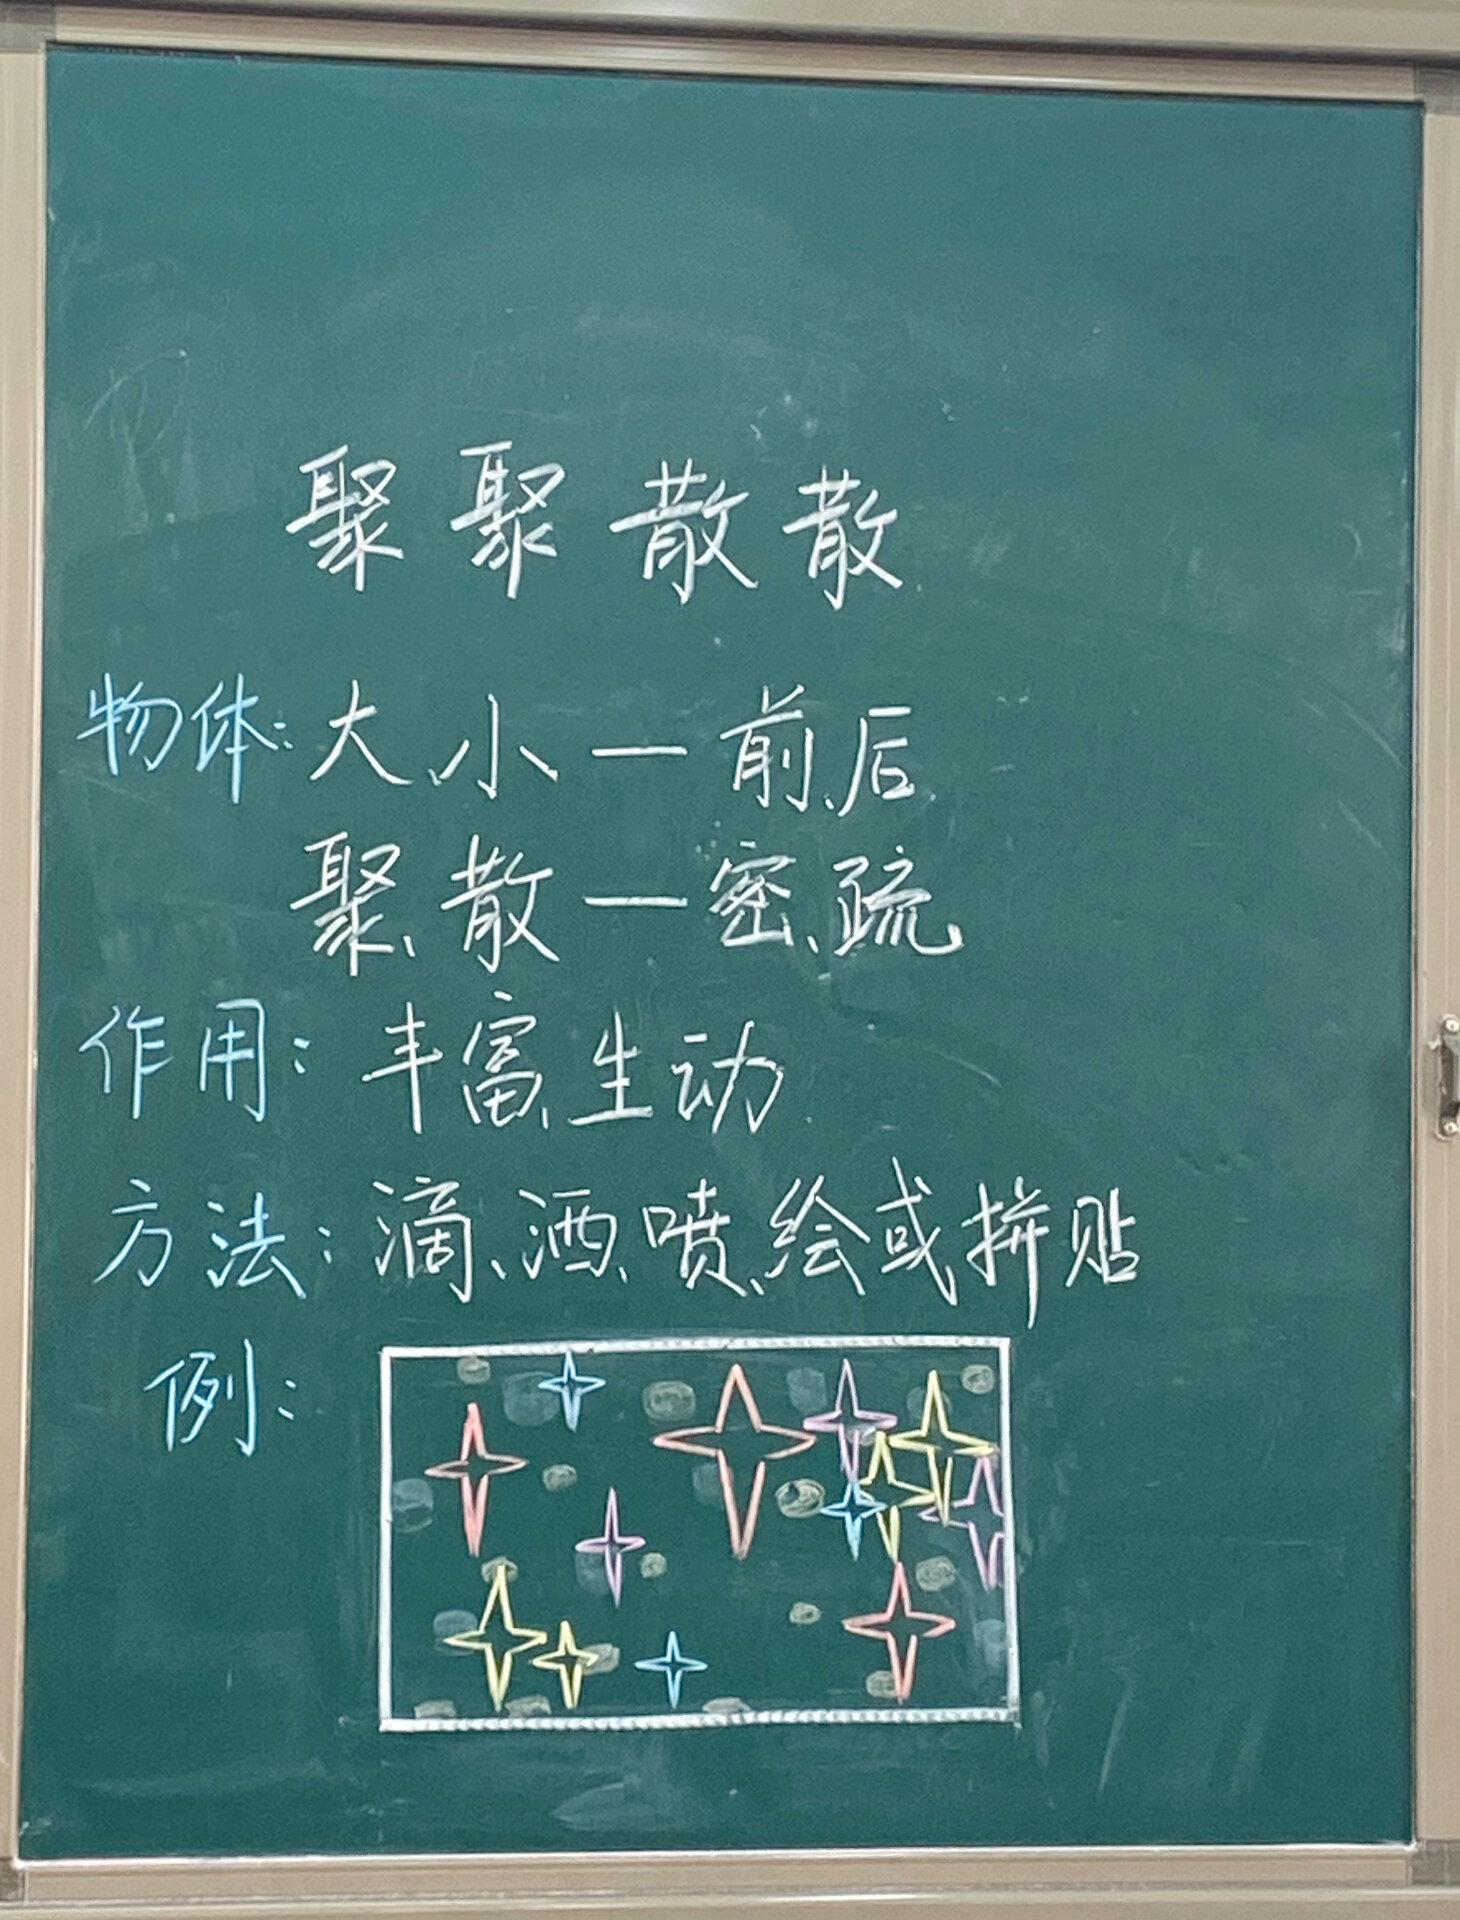 聚聚散散
物体：大、小—前、后
聚、散—密、疏
作用：丰富、生动
方法：滴、洒、喷、绘或拼贴
例：